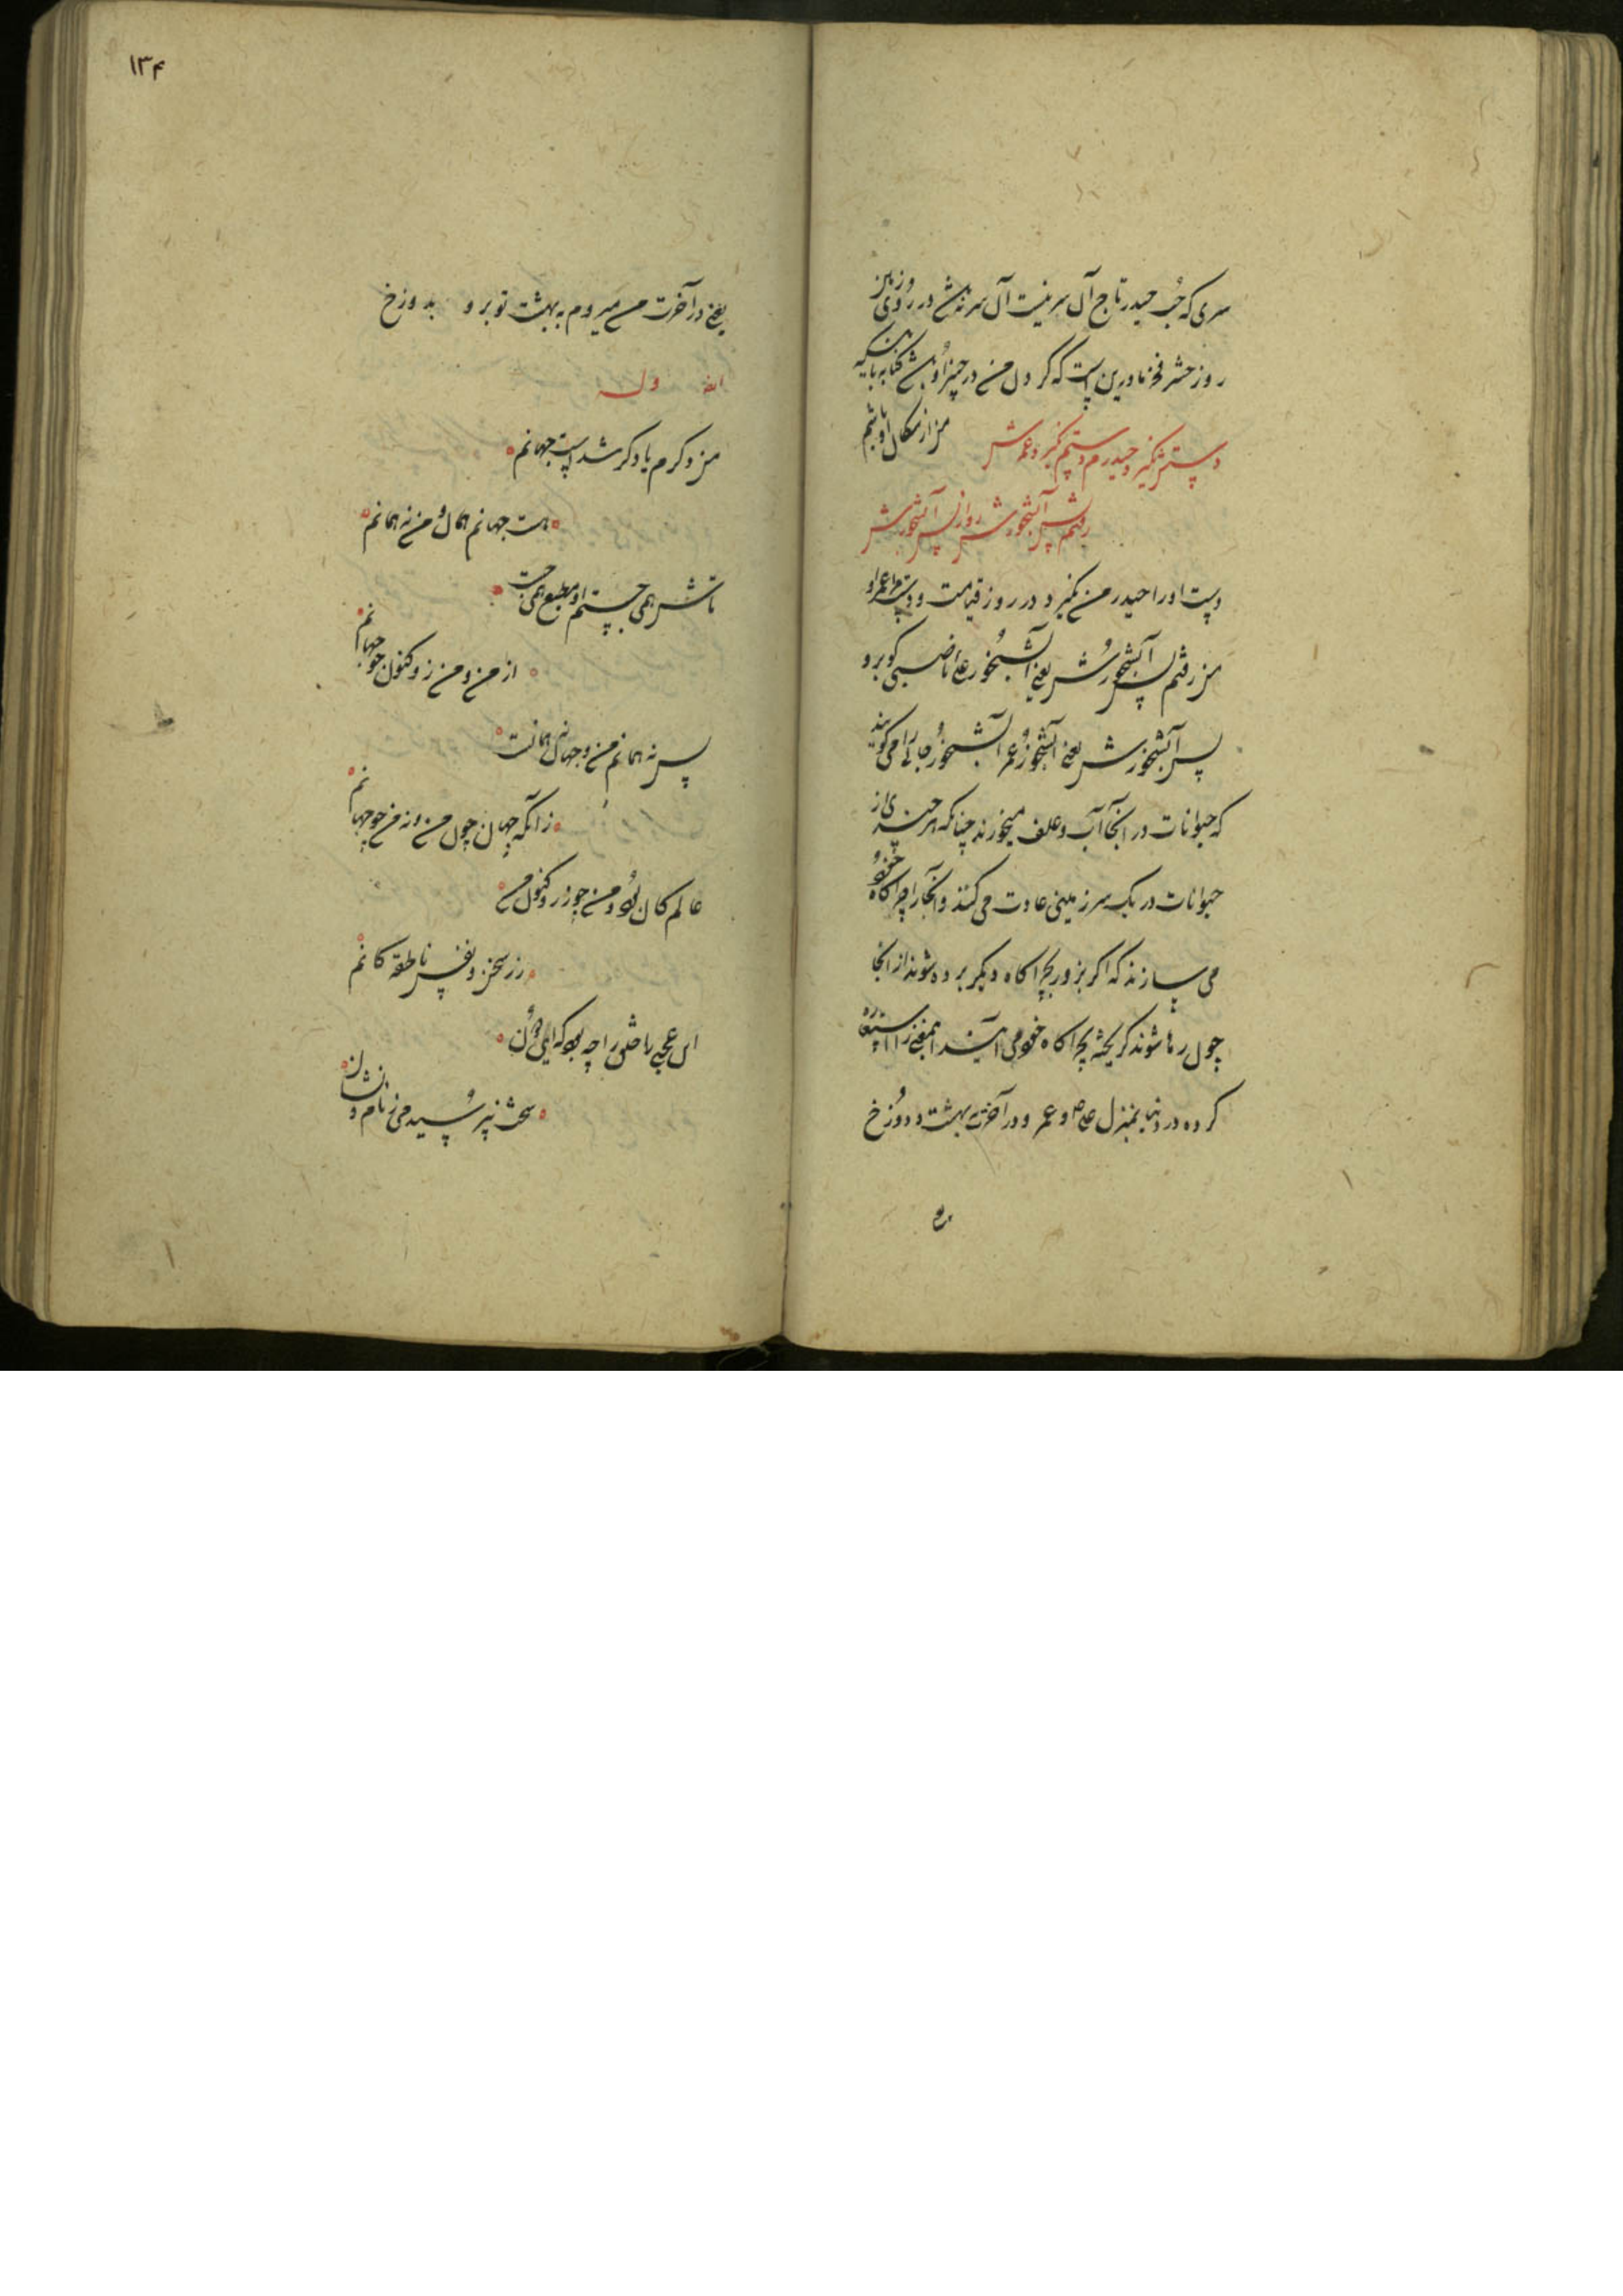 سری که حب حیدر تاج آن سر نیست آن سر نباشد در روی زمین
روز حشر فخر مادرین است که گر دل من در چیز او باشد
دستش نگیرد حیدرم دستم نگیرد عمرش
من از سگان او باشم
رفتم پس آبشخورش رو زان پس آبشخورش
دست او را حیدر من نگیرد در روز قیامت و دست مرا عمر او
من رفتم پس آبشخورش یعنی آبشخور علی ناصبی کو برو
پس آبشخورش یعنی آبشخور عمر آبشخور جائی را می گویند
که حیوانات در آنجا آب و علف میخورند چنانکه هر چندی از
حیوانات در یک سرزمینی عادت می کنند و آنجا را چراگاه خود
می سازند که اگر بزور بچراگاه دیگر برده شوند از آنجا
چون رها شوند گریخته بچراگاه خود می آیند این معنی را استعاره
کرده در دنیا بمنزل علی و عمر و در آخرت بهشت و دوزخ
یعنی
۱۳۴
یعنی در آخرت من میروم به بهشت تو برو بدوزخ
ایضا وله
من دگرم یا دگر شد است جهانم
هست جهانم همان و من نه همانم
تاش همی جستم او بطبع همی جست
از من و من زو کنون جهانم
پس نه همانم من و جهان نه همانست
زانکه جهان چون من و نه من چو جهانم
عالم کان بود و من چو زر و کنون من
زر سخن و نفس ناطقه کانم
این عجبی باش را چه بود که ایدون
سخت نپرسید می ز نام و نشانم